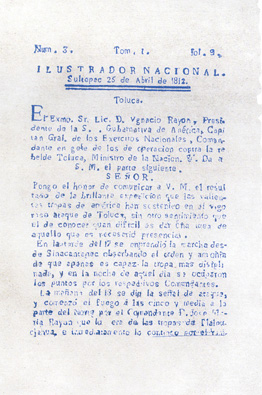 Num. 3. Tom. I. fol. 9.
ILUSTRADOR NACIONAL.
Sultepec 25 de Abril de 1812.
Toluca.
El Exmo. Sr. Lic. D. Ygnacio Rayon, Presi
dente de la S. Gubernativa de América, Capi
tan Gral. de los Exercitos Nacionales, Coman
dante en gefe de los de operacion contra la re
belde Toluca, Ministro de la Nacion. Da a
S. M. el parte siguiente.
SEÑOR.
Pongo el honor de comunicar a V. M. el resul
tado de la brillante expedicion que las valien
tes tropas de américa han sostenido en el vigo
roso ataque de Toluca, sin otro sentimiento que
el de conocer quan dificil es dar una idea de
aquello que es necesario presenciar.
En la tarde del 17 se emprendió la marcha des
de Sinacantepec observando el orden y armonia
de que apenas es capaz la tropa mas discipli
nada, y en la noche de aquel dia se ocuparon
los puntos por los respectivos Comandantes.
La mañana del 18 se dió la señal de ataque,
y comenzó el fuego á las cinco y media a la
parte del Norte por el Comandante D. José Ma
ria Rayon que la de las tropas de
é inmediatamente lo contesto por el